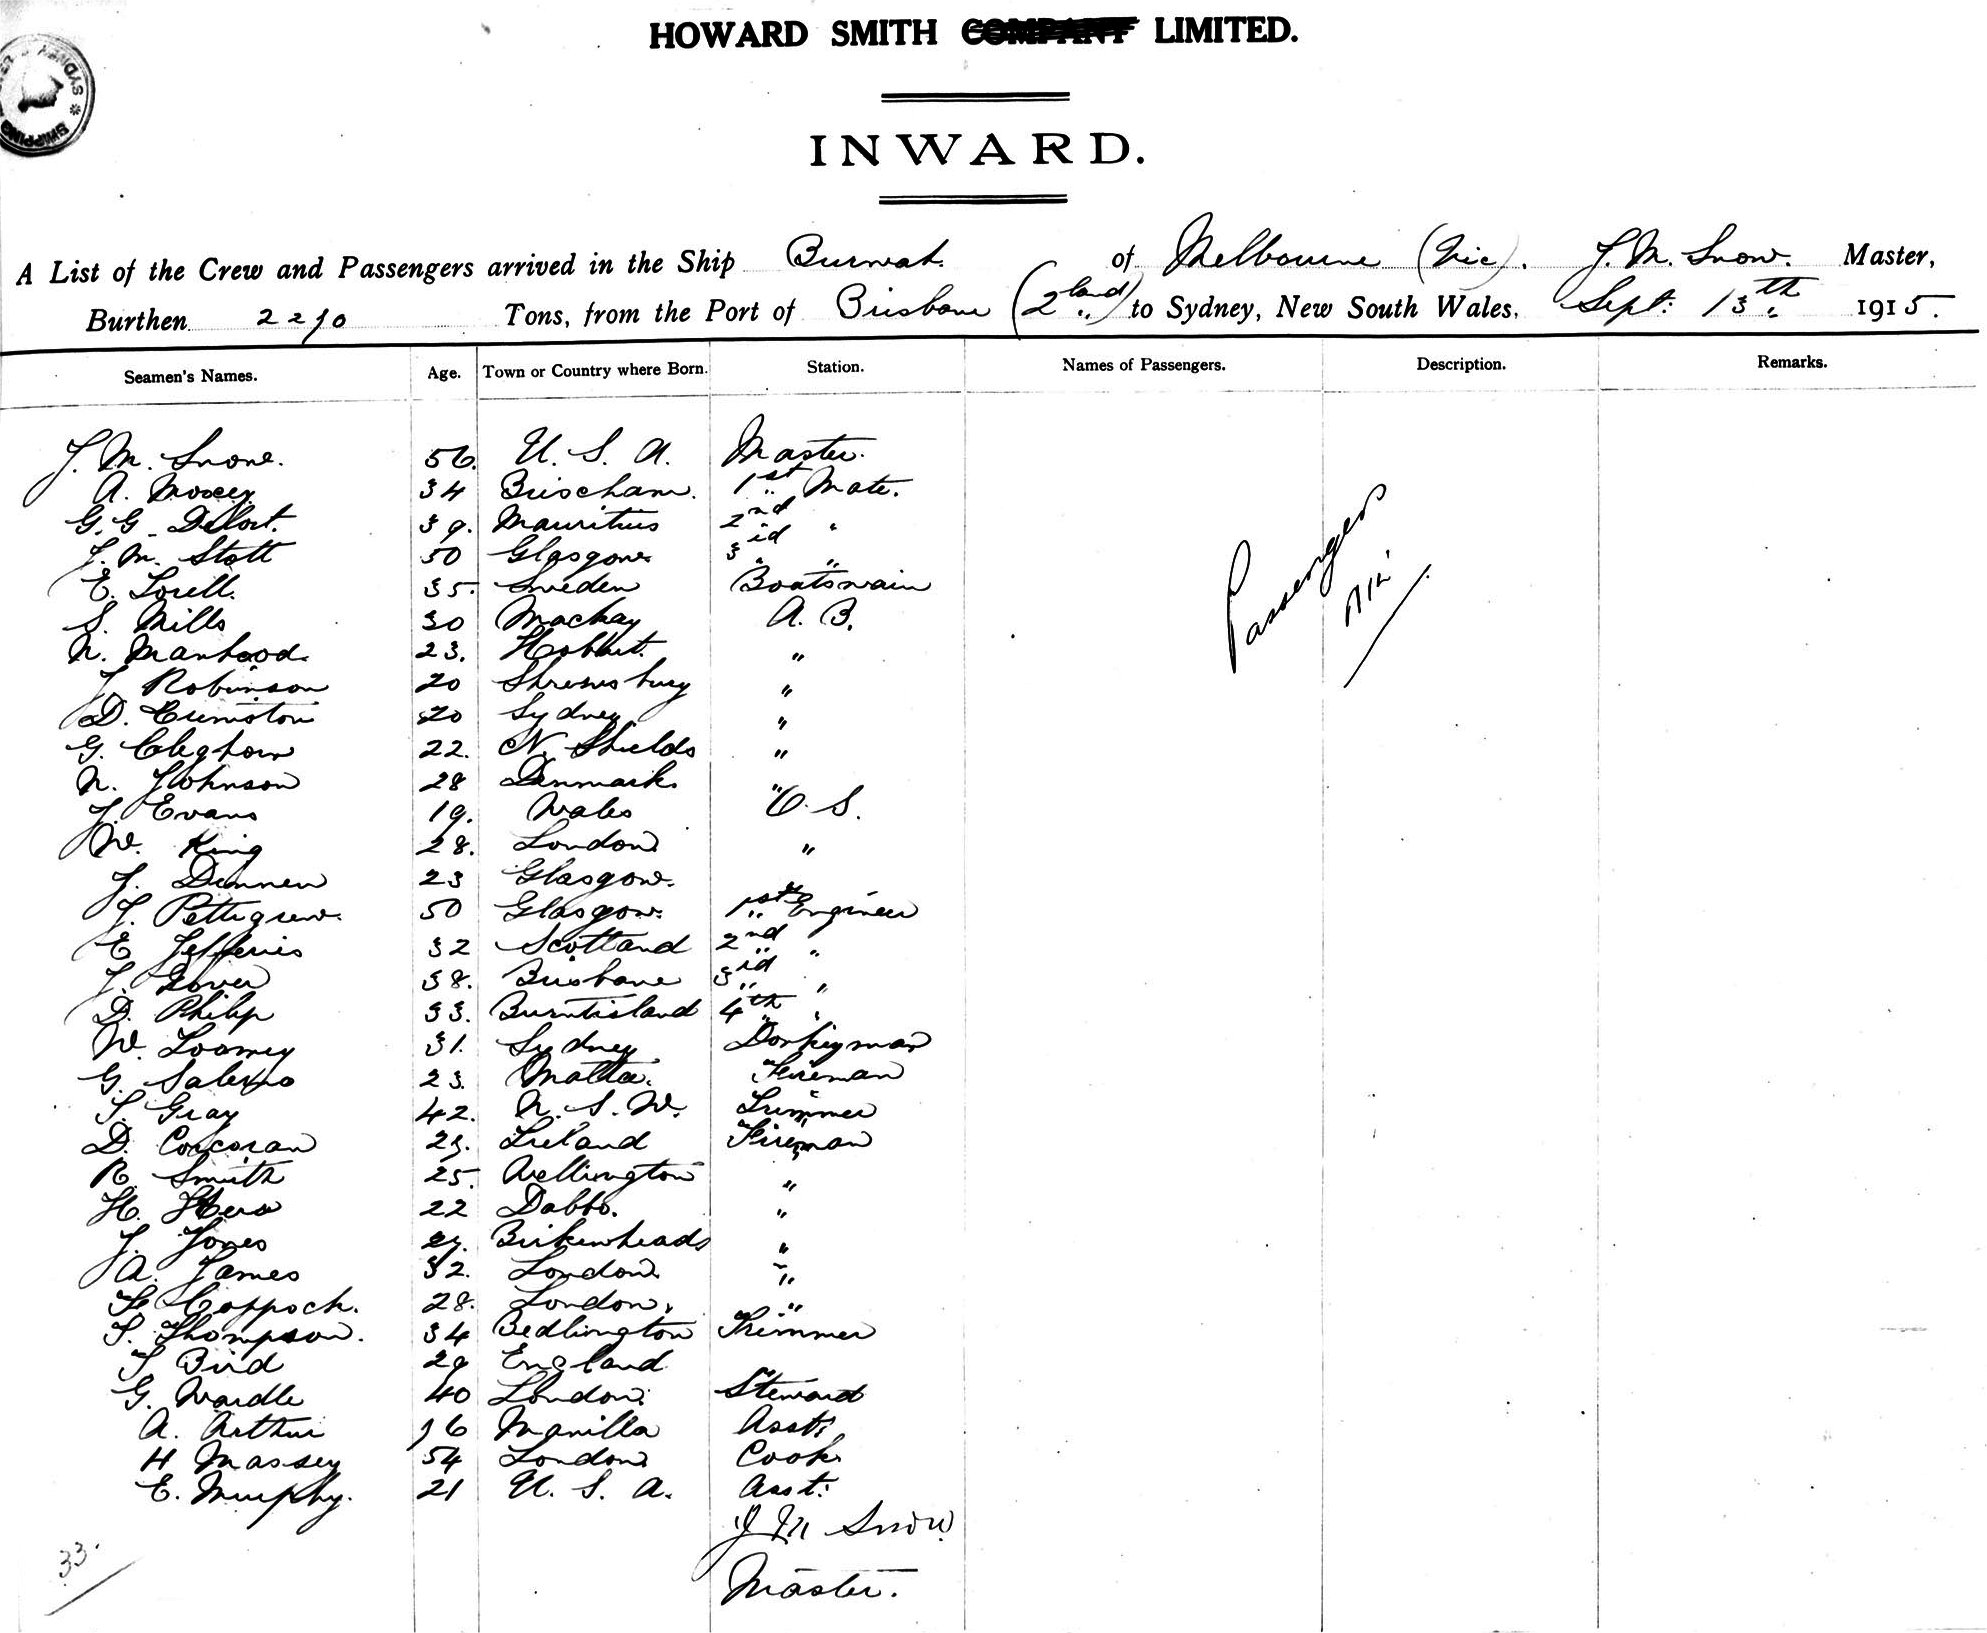 HOWARD SMITH COMPANY LIMITED.
SYDNEY
SHIPPING
INWARD.
A List of the Crew and Passengers arrived in the Ship Burwah of Melbourne (Vic). J. M. Snow. Master,
Burthen 2210 Tons, from the Port of Brisbane to Sydney, New South Wales, Sept: 13th 1915.
Seamen's Names. Age. Town or Country where Born. Station. Names of Passengers. Description. Remarks.
J. M. Snow. 56. U. S. A. Master.
A. Moxey 34 Brixham. 1st Mate.
G. G. 39. Mauritius 2nd "
J. M. Stott 50 Glasgow 3rd "
E. Lorell. 35. Sweden Boatswain
S. Mills 30 Mackay A. B.
N. Manhood. 23. Hobart. "
J. Robinson 20 Shrewsbury "
D. 20 Sydney "
G. Cleghorn 22. N. Shields "
N. Johnson 28 Denmark "
J. Evans 19. Wales O. S.
W. King 28. London "
J. 23 Glasgow.
J. Pettigrew. 50 Glasgow. 1st Engineer
E Jefferies 32 Scotland 2nd "
J. Gover 38. Brisbane 3rd "
D. Philip 33. Burntisland 4th "
W. Loomey 31. Sydney Donkeyman
G. 23. Malta. Fireman
S. Gray 42. N. S. W. Trimmer
D. Corcoran Ireland Fireman
R. Smith 25. Wellington "
H. 22 Dubbo. "
J. Jones Birkenhead "
A. James 32. London "
F. Coppock. 28. London. "
S. Thompson. 34 Bedlington Trimmer
S Bird 29 England
G. Wardle 40 London. Steward
A. Arthur Manilla Asst:
H Massey 54 London Cook
E. Murphy. 21 U. S. A. Asst:
J M Snow
Master.
Passengers
Nil
33.